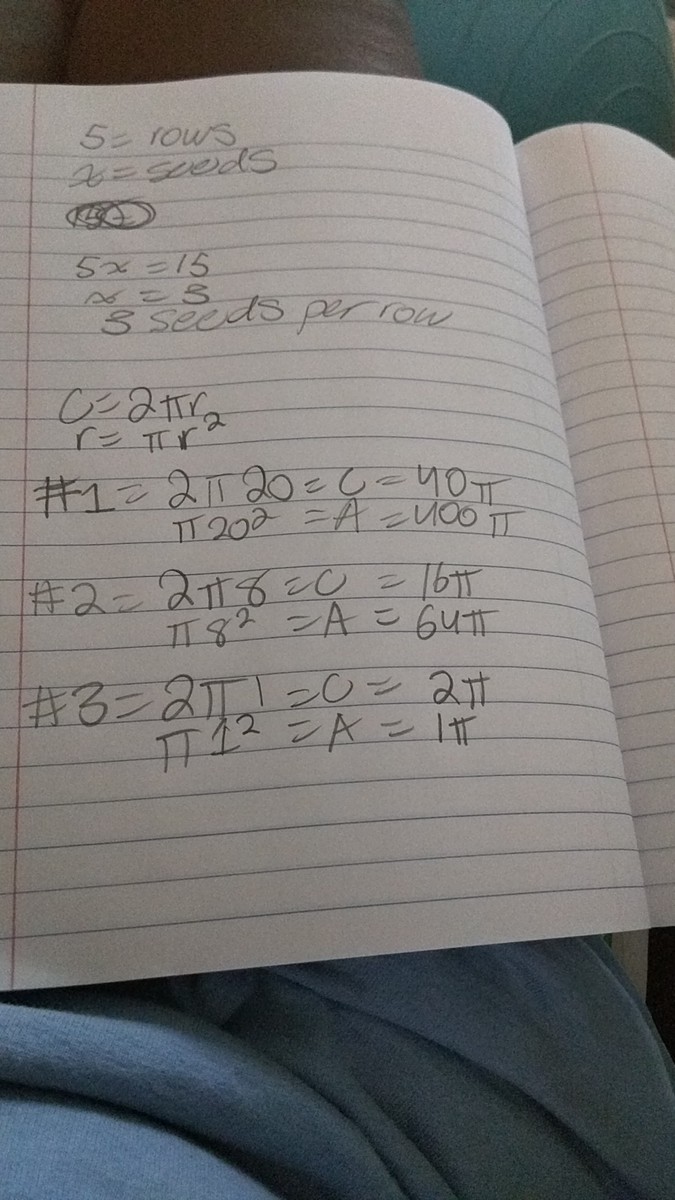 5 = rows
x = seeds
5x = 15
x = 3
3 seeds per row
C = 2πr
r = πr²
#1 = 2π20 = C = 40π
π20² = A = 400π
#2 = 2π8 = C = 16π
π8² = A = 64π
#3 = 2π1 = C = 2π
π1² = A = 1π